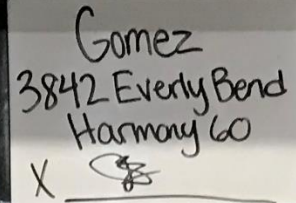 Gomez
3842 Everly Bend
Harmony 60
X